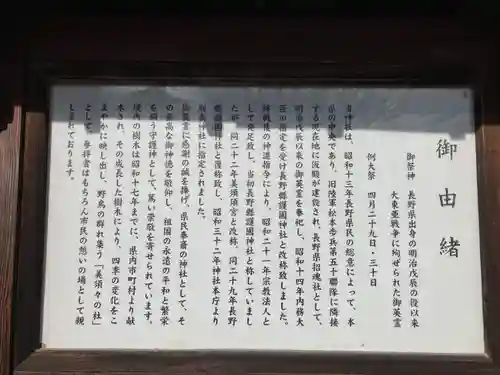 御由緒
御祭神 長野県出身の明治戊辰の役以来
大東亜戦争に殉ぜられた御英霊
例大祭 四月二十九日・三十日
当神社は、昭和十三年長野県民の総意によって、本
県の中央であり、旧陸軍松本歩兵第五十聯隊に隣接
する現在地に仮殿が建設され、長野県招魂社として、
明治戊辰以来の御英霊を奉祀し、昭和十四年内務大
臣の指定を受け長野縣護國神社と改称致しました。
終戦後の神道指令により、昭和二十一年宗教法人と
して再発足致し、当初長野縣護國神社と称していまし
たが、同二十二年美須須宮と改称、同二十九年長野
縣護國神社と復称致し、昭和三十二年神社本庁より
別表神社に指定されました。
御英霊に感謝の誠を捧げ、県民奉斎の神社として、そ
の崇高な御神徳を敬仰し、祖国の永遠の平和と繁栄
を祈う守護神として、篤い崇敬を寄せられています。
境内の樹木は昭和十七年までに、県内市町村より献
木され、その成長した樹木により、四季の変化をこ
まやかに映し出し、野鳥の群れ集う「美須々の杜」
として、参拝者はもちろん市民の憩いの場として親
しまれております。